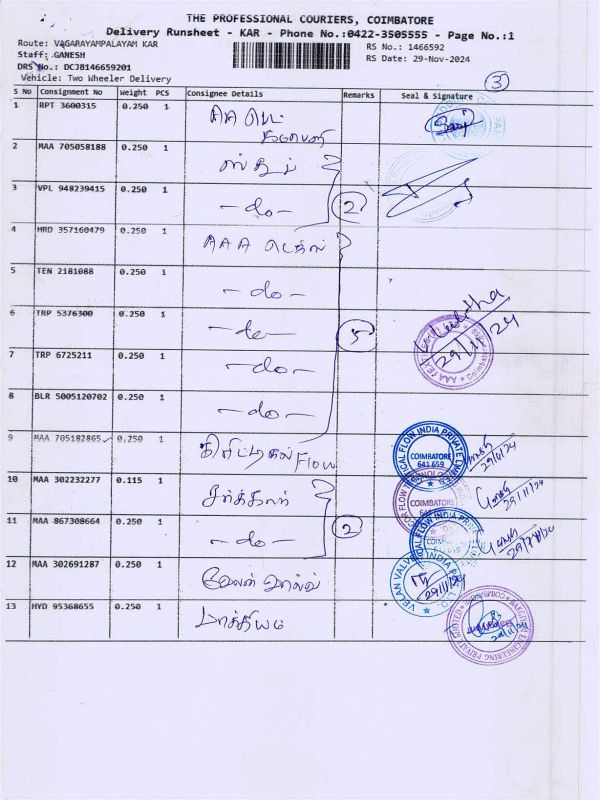 THE PROFESSIONAL COURIERS, COIMBATORE
Delivery Runsheet - KAR - Phone No.:0422-3505555 - Page No.:1
Route: VAGARAYAMPALAYAM KAR
RS No.: 1466592
Staff: GANESH
RS Date: 29-Nov-2024
DRS No.: DCJB146659201
Vehicle: Two Wheeler Delivery
3
S No Consignment No Weight PCS Consignee Details Remarks Seal & Signature
1 RPT 3600315 0.250 1 AA
2 MAA 705058188 0.250 1
3 VPL 948239415 0.250 1 -do- 2
4 HRD 357160479 0.250 1 AAA
5 TEN 2181088 0.250 1 -do-
6 TRP 5376300 0.250 1 -do- 5
29/11/24
7 TRP 6725211 0.250 1 -do-
8 BLR 5005120702 0.250 1 -do-
9 MAA 705182865 0.250 1 கிரிட்டிகல் Flow
CRITICAL FLOW INDIA PRIVATE LIMITED
COIMBATORE
641 659
29/11/24
10 MAA 302232277 0.115 1 சர்க்கார்
COIMBATORE
29/11/24
11 MAA 867308664 0.250 1 -do- 2
12 MAA 302691287 0.250 1 வேலன் வால்வ்
VELAN VALVES INDIA
29/11/24
13 HYD 95368655 0.250 1 பாக்கியம்
ENGINEERING PRIVATE LIMITED
29/11/24